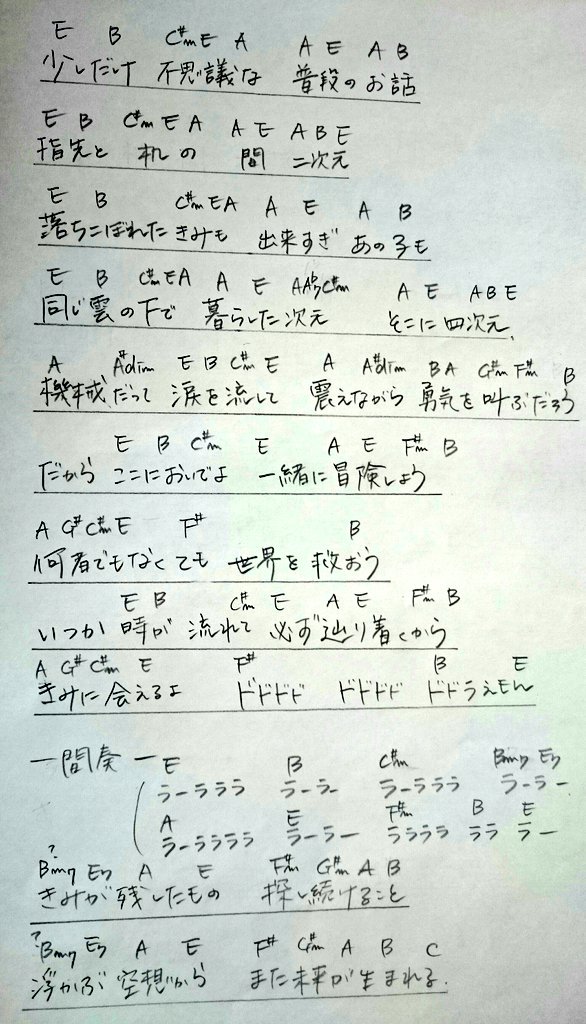 E B C#m E A A E A B
少しだけ 不思議な 普段のお話
E B C#m E A A E A B E
指先と 机の 間 二次元
E B C#m E A A E A B
落ちこぼれた きみも 出来すぎ あの子も
E B C#m E A A E A A♭7 C#m A E A B E
同じ雲の下で 暮らした次元 そこに四次元
A A#dim E B C#m E A A#dim B A G#m F#m B
機械だって 涙を流して 震えながら 勇気を叫ぶだろう
E B C#m E A E F#m B
だから ここにおいでよ 一緒に冒険しよう
A G# C#m E F# B
何者でもなくても 世界を救おう
E B C#m E A E F#m B
いつか 時が 流れて 必ず辿り着くから
A G# C#m E F# B E
きみに会えるよ ドドドド ドドドド ドドラえもん
ー間奏ー E B C#m Bm7 E7
ラーラララ ラーラー ラーラララ ラーラー
A E F#m B E
ラーララララ ラーラー ララララ ララ ラー
? Bm7 E7 A E F#m G#m A B
きみが残したもの 探し続けること
? Bm7 E7 A E F# C#m A B C
浮かぶ 空想から また未来が生まれる.